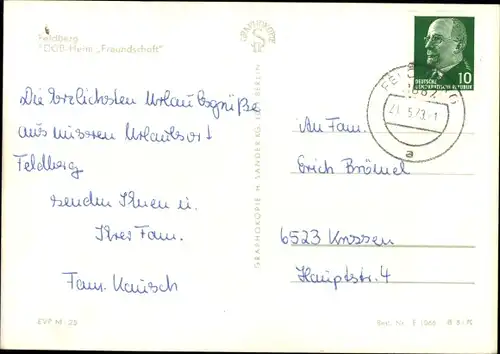 Feldberg
FDGB-Heim „Freundschaft"
Die herzlichsten Urlaubsgrüße
aus unseren Urlaubsort
Feldberg
senden Ihnen u.
Ihrer Fam.
Fam.
EVP M -,20
GRAPHOKOPIE H. SANDER KG. BERLIN
10
DEUTSCHE
DEMOKRATISCHE REPUBLIK
FELDBERG
21.5.73
a
An Fam.
Erich Brömel
6523 Krossen
Hauptstr. 4
Best. Nr. F 1066